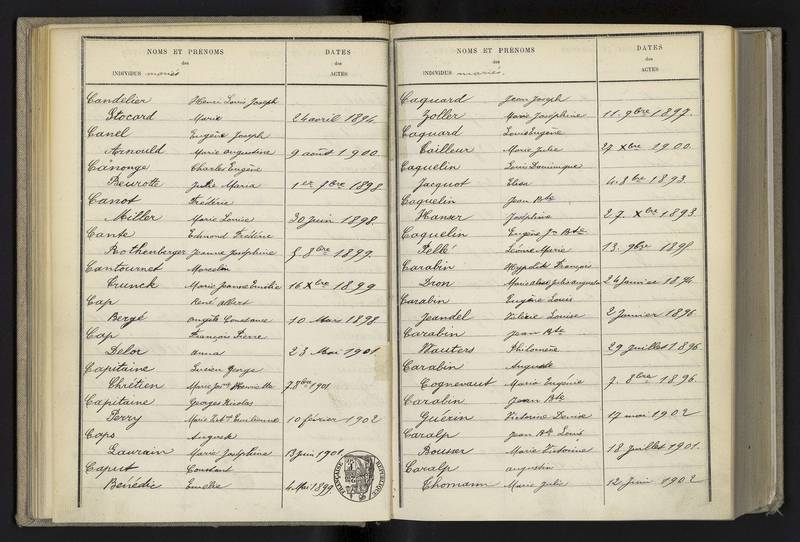 NOMS ET PRÉNOMS DATES
des des
INDIVIDUS mariés ACTES
Candelier Henri Louis Joseph
Stocard Marie 24 avril 1894
Canel Eugène Joseph
Arnould Marie Augustine 9 août 1900
Canonge Charles Eugène
Beurotte Julie Maria 1er 7bre 1898
Canot Frédéric
Miller Marie Louise 30 juin 1898
Cante Edmond Frédéric
Rothenberger Jeanne Joséphine 5 8bre 1899
Cantournet Marcelin
Crunck Marie Jeanne Emilie 16 Xbre 1899
Cap René Albert
Bergé Constance 10 Mars 1898
Cap François Pierre
Delor Anna 23 Mai 1901
Capitaine Lucien George
Chrétien Marie Henriette 7 8bre 1901
Capitaine Georges Nicolas
Perry Marie 10 février 1902
Caps August
Laurain Marie Joséphine 13 juin 1901
Caput Constant
Bénédic Emélie 4 Mai 1899
NOMS ET PRÉNOMS DATES
des des
INDIVIDUS mariés. ACTES
Caquard Jean Joseph
Zoller Marie Joséphine 11 9bre 1897
Caquard Louis Eugène
Cailleur Marie Julie 27 Xbre 1900
Caquelin Louis Dominique
Jacquot Elisa 4 8bre 1893
Caquelin Jean Bte
Hanser Joséphine 27 Xbre 1893
Caquelin Eugène Jn Bte
Pelbé Léonie Marie 13 9bre 1895
Carabin Hyppolite François
Dron 24 janvier 1894
Carabin Eugène Louis
Jeandel Valérie Louise 2 janvier 1896
Carabin Jean Bte
Wauters Philomène 29 juillet 1896
Carabin Auguste
Cognevaut Marie Eugénie 7 8bre 1896
Carabin Jean Bte
Guérin Victorine Denise 17 mai 1902
Caralp Jean Bte Louis
Bousser Marie Victorine 18 juillet 1901
Caralp Augustin
Thomann Marie Julie 12 juin 1902